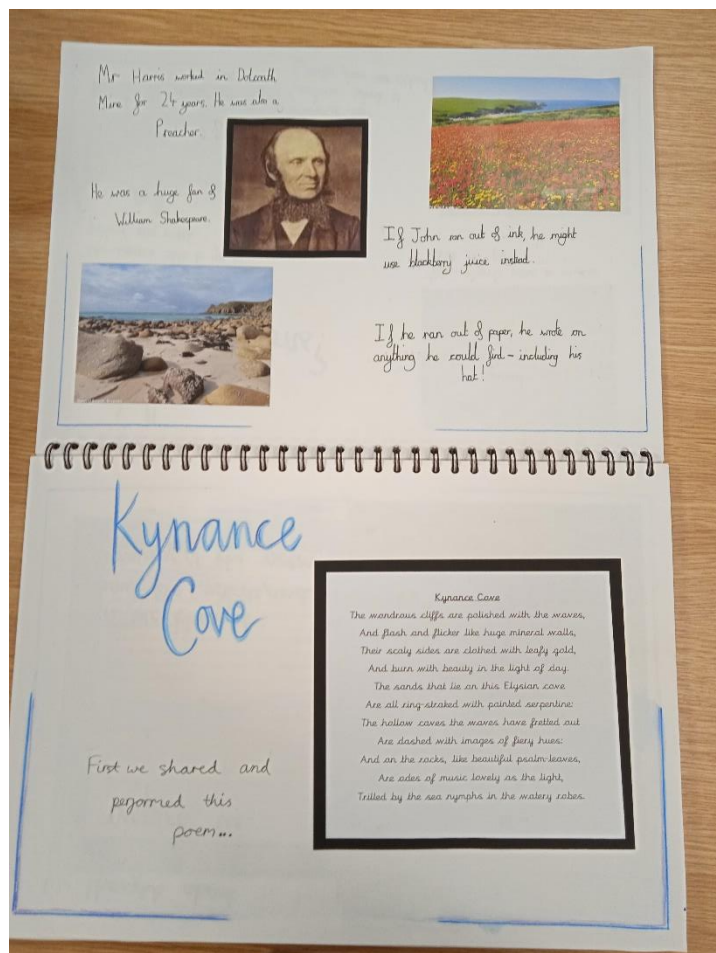 Mr Harris worked in Dolcoath
Mine for 24 years. He was also a
Preacher.
He was a huge fan of
William Shakespeare.
If John ran out of ink, he might
use blackberry juice instead.
If he ran out of paper, he wrote on
anything he could find - including his
hat!
Kynance
Cove
First we shared and
performed this
poem...
Kynance Cove
The wondrous cliffs are polished with the waves,
And flash and flicker like huge mineral walls,
Their scaly sides are clothed with leafy gold,
And burn with beauty in the light of day.
The sands that lie on this Elysian cove
Are all ring-straked with painted serpentine:
The hollow caves the waves have fretted out
Are dashed with images of fiery hues:
And on the rocks, like beautiful psalm-leaves,
Are odes of music lovely as the light,
Trilled by the sea nymphs in the watery robes.